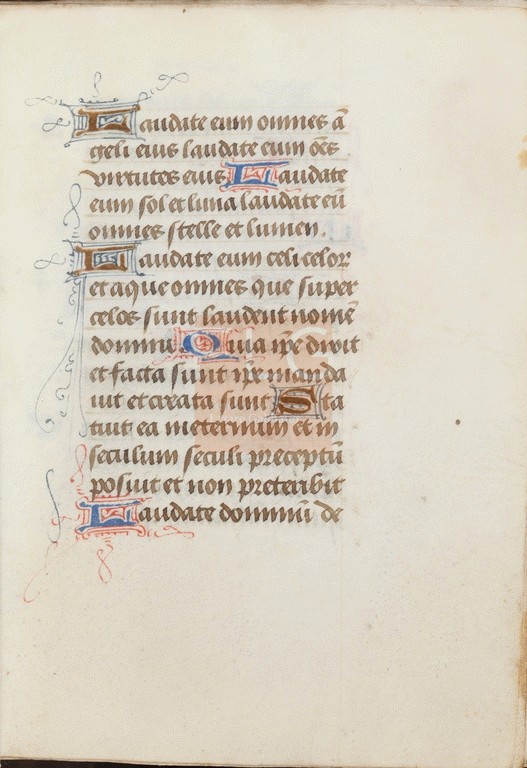 Laudate eum omnes ā
geli eius laudate eum oēs
virtutes eius Laudate
eum sol et luna laudate eū
omnes stelle et lumen.
Laudate eum celi celoꝝ
et aque omnes que super
celos sunt laudent nomē
domini Quia ip̄e dixit
et facta sunt ip̄e manda
uit et creata sunt Sta
tuit ea in eternum et in
seculum seculi preceptū
posuit et non preteribit
Laudate dominū de